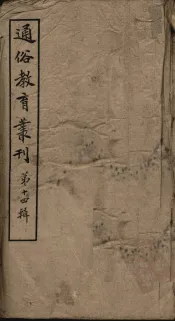 通俗教育叢刊 第十四輯